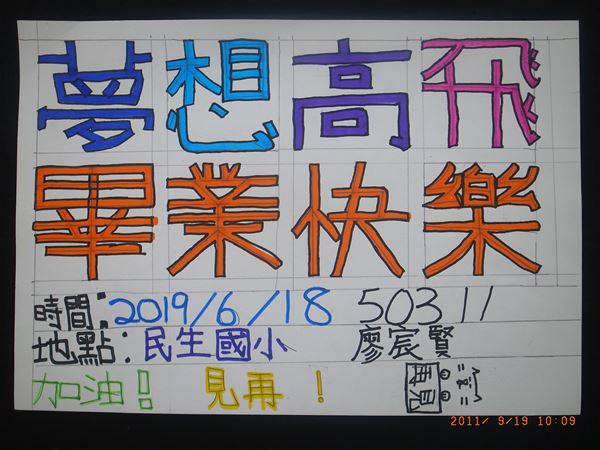 夢想高飛
畢業快樂
時間:2019/6/18 50311
地點:民生國小 廖宸賢
加油! 見再! 再見
2011/ 9/19 10:09